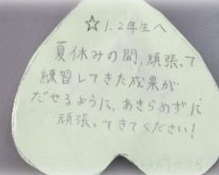 ☆1.2年生へ
夏休みの間、頑張って
練習してきた成果が
だせるように、あきらめずに
頑張ってきてください!